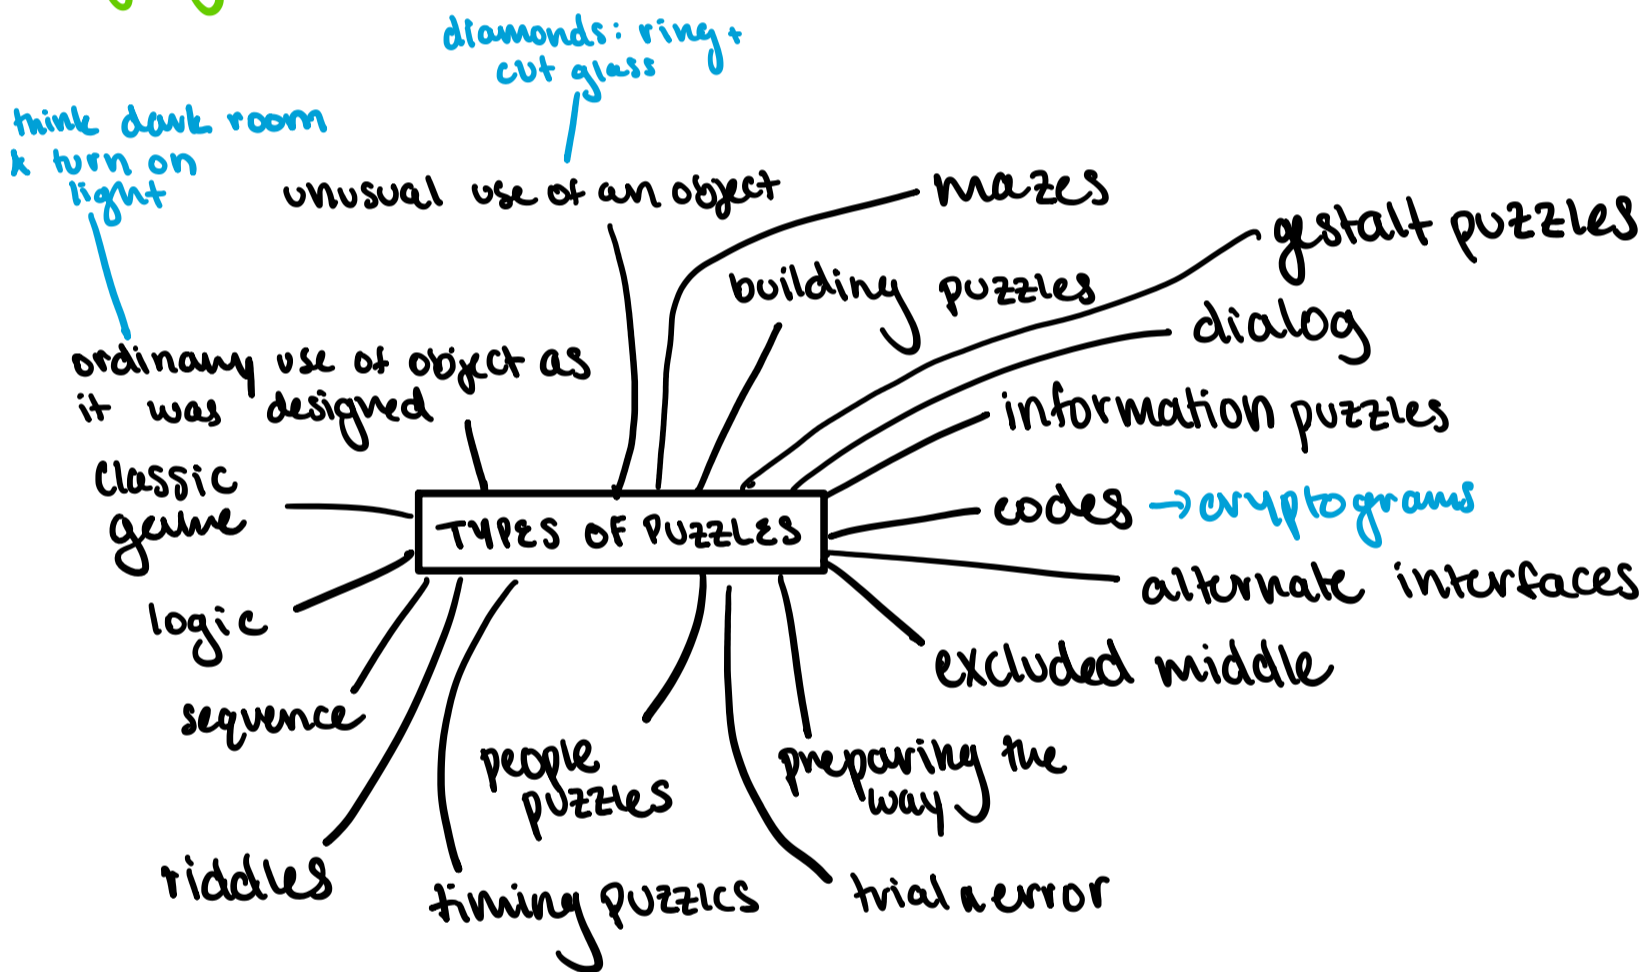 diamonds: ring +
cut glass
think dark room
& turn on
light
unusual use of an object
mazes
gestalt puzzles
building puzzles
dialog
ordinary use of object as
it was designed
information puzzles
classic
game
TYPES OF PUZZLES
codes → cryptograms
alternate interfaces
logic
excluded middle
sequence
people
puzzles
preparing the
way
riddles
timing puzzles
trial & error